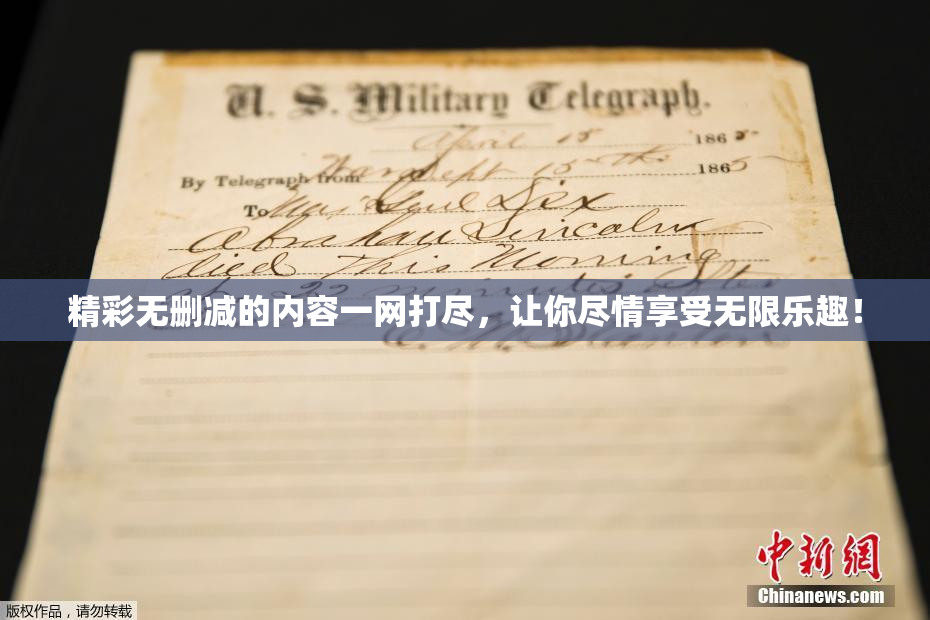 U. S. Military Telegraph.
April 15 1865
By Telegraph from War Dept 15th 1865
To Maj Genl Dix
Abraham Lincoln
died This Morning
at 22 minutes after
精彩无删减的内容一网打尽，让你尽情享受无限乐趣！
E. M. Stanton
中新网
Chinanews.com
版权作品，请勿转载